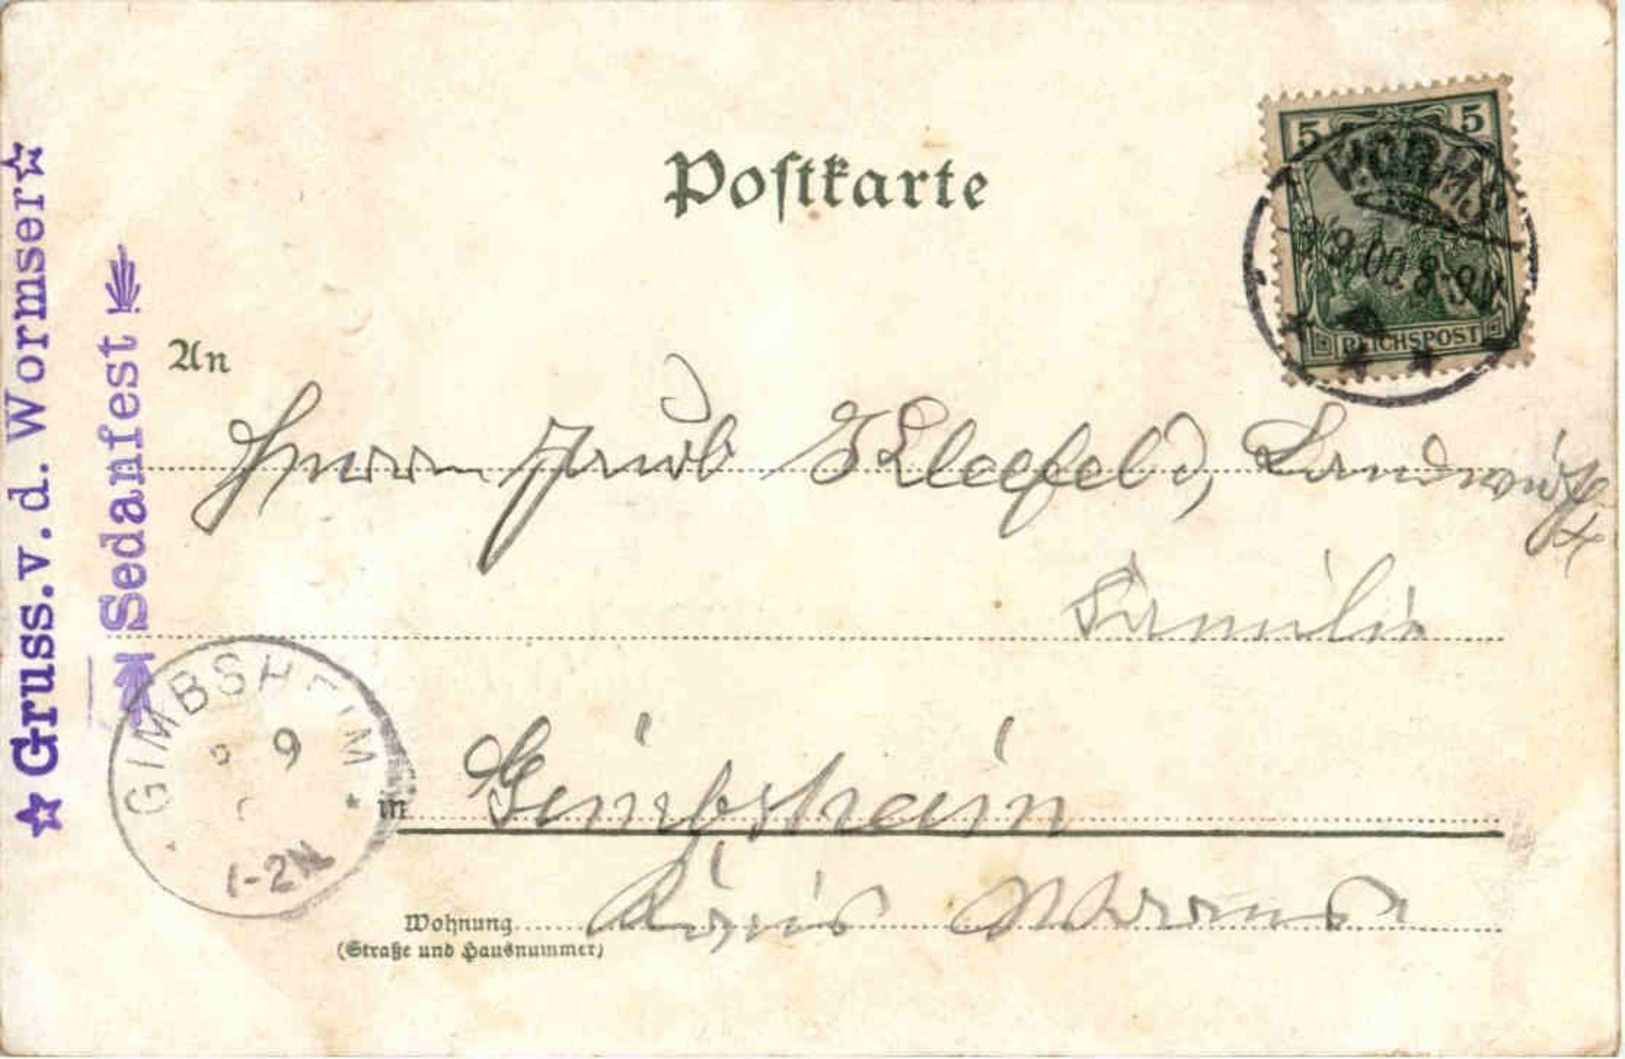 Postkarte
5 5
REICHSPOST
WORMS
9.00.8-9N
☆ Gruss.v.d.Wormser ☆
Sedanfest
An
Herrn Jacob Kleefeld, Landwirth
Familie
in Gimbsheim
Wohnung Kreis Worms
(Straße und Hausnummer)
GIMBSHEIM
9
1-2N